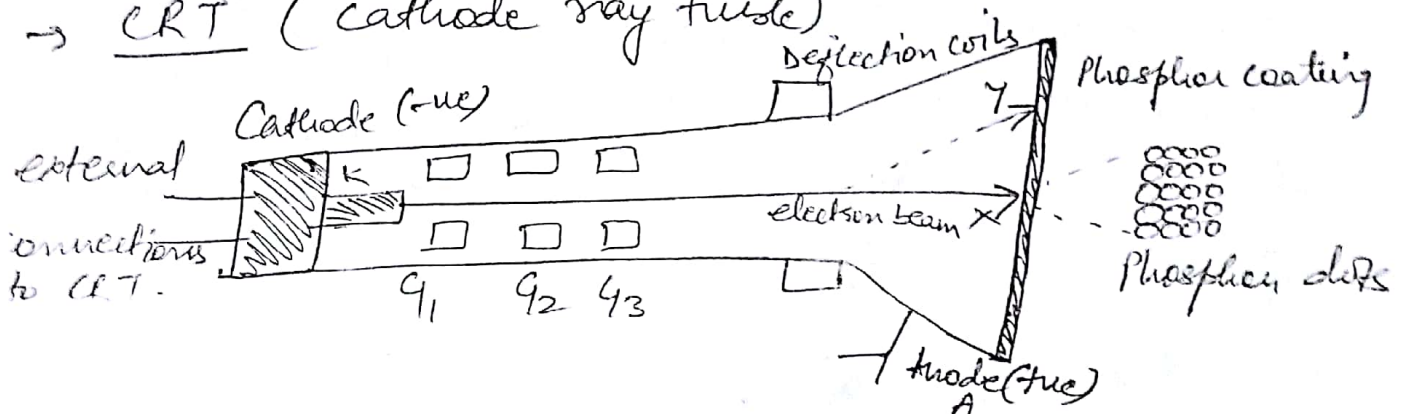 → CRT ( Cathode ray tube)
Deflection coils
Phosphor coating
Cathode (-ve)
Y
external
K
electron beam X
onnections
to CRT.
G1 G2 G3
Phosphor dots
Anode (+ve)
A